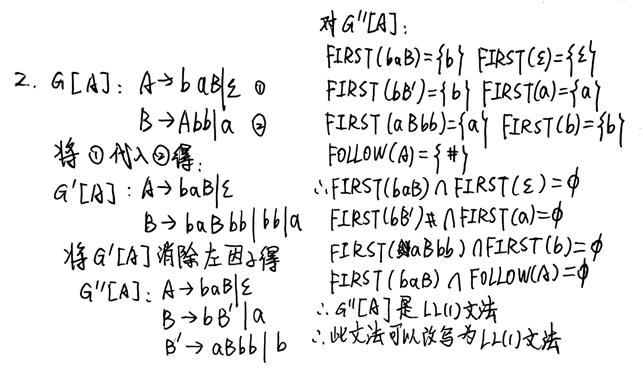 2. G[A]: A→baB|ε ①
B→Abb|a ②
将①代入②得:
G'[A]: A→baB|ε
B→baBbb|bb|a
将G'[A]消除左因子得
G''[A]: A→baB|ε
B→bB'|a
B'→aBbb|b
对G''[A]:
FIRST(baB)={b} FIRST(ε)={ε}
FIRST(bB')={b} FIRST(a)={a}
FIRST(aBbb)={a} FIRST(b)={b}
FOLLOW(A)={#}
∴FIRST(baB)∩FIRST(ε)=φ
FIRST(bB')∩FIRST(a)=φ
FIRST(aBbb)∩FIRST(b)=φ
FIRST(baB)∩FOLLOW(A)=φ
∴G''[A]是LL(1)文法
∴此文法可以改写为LL(1)文法